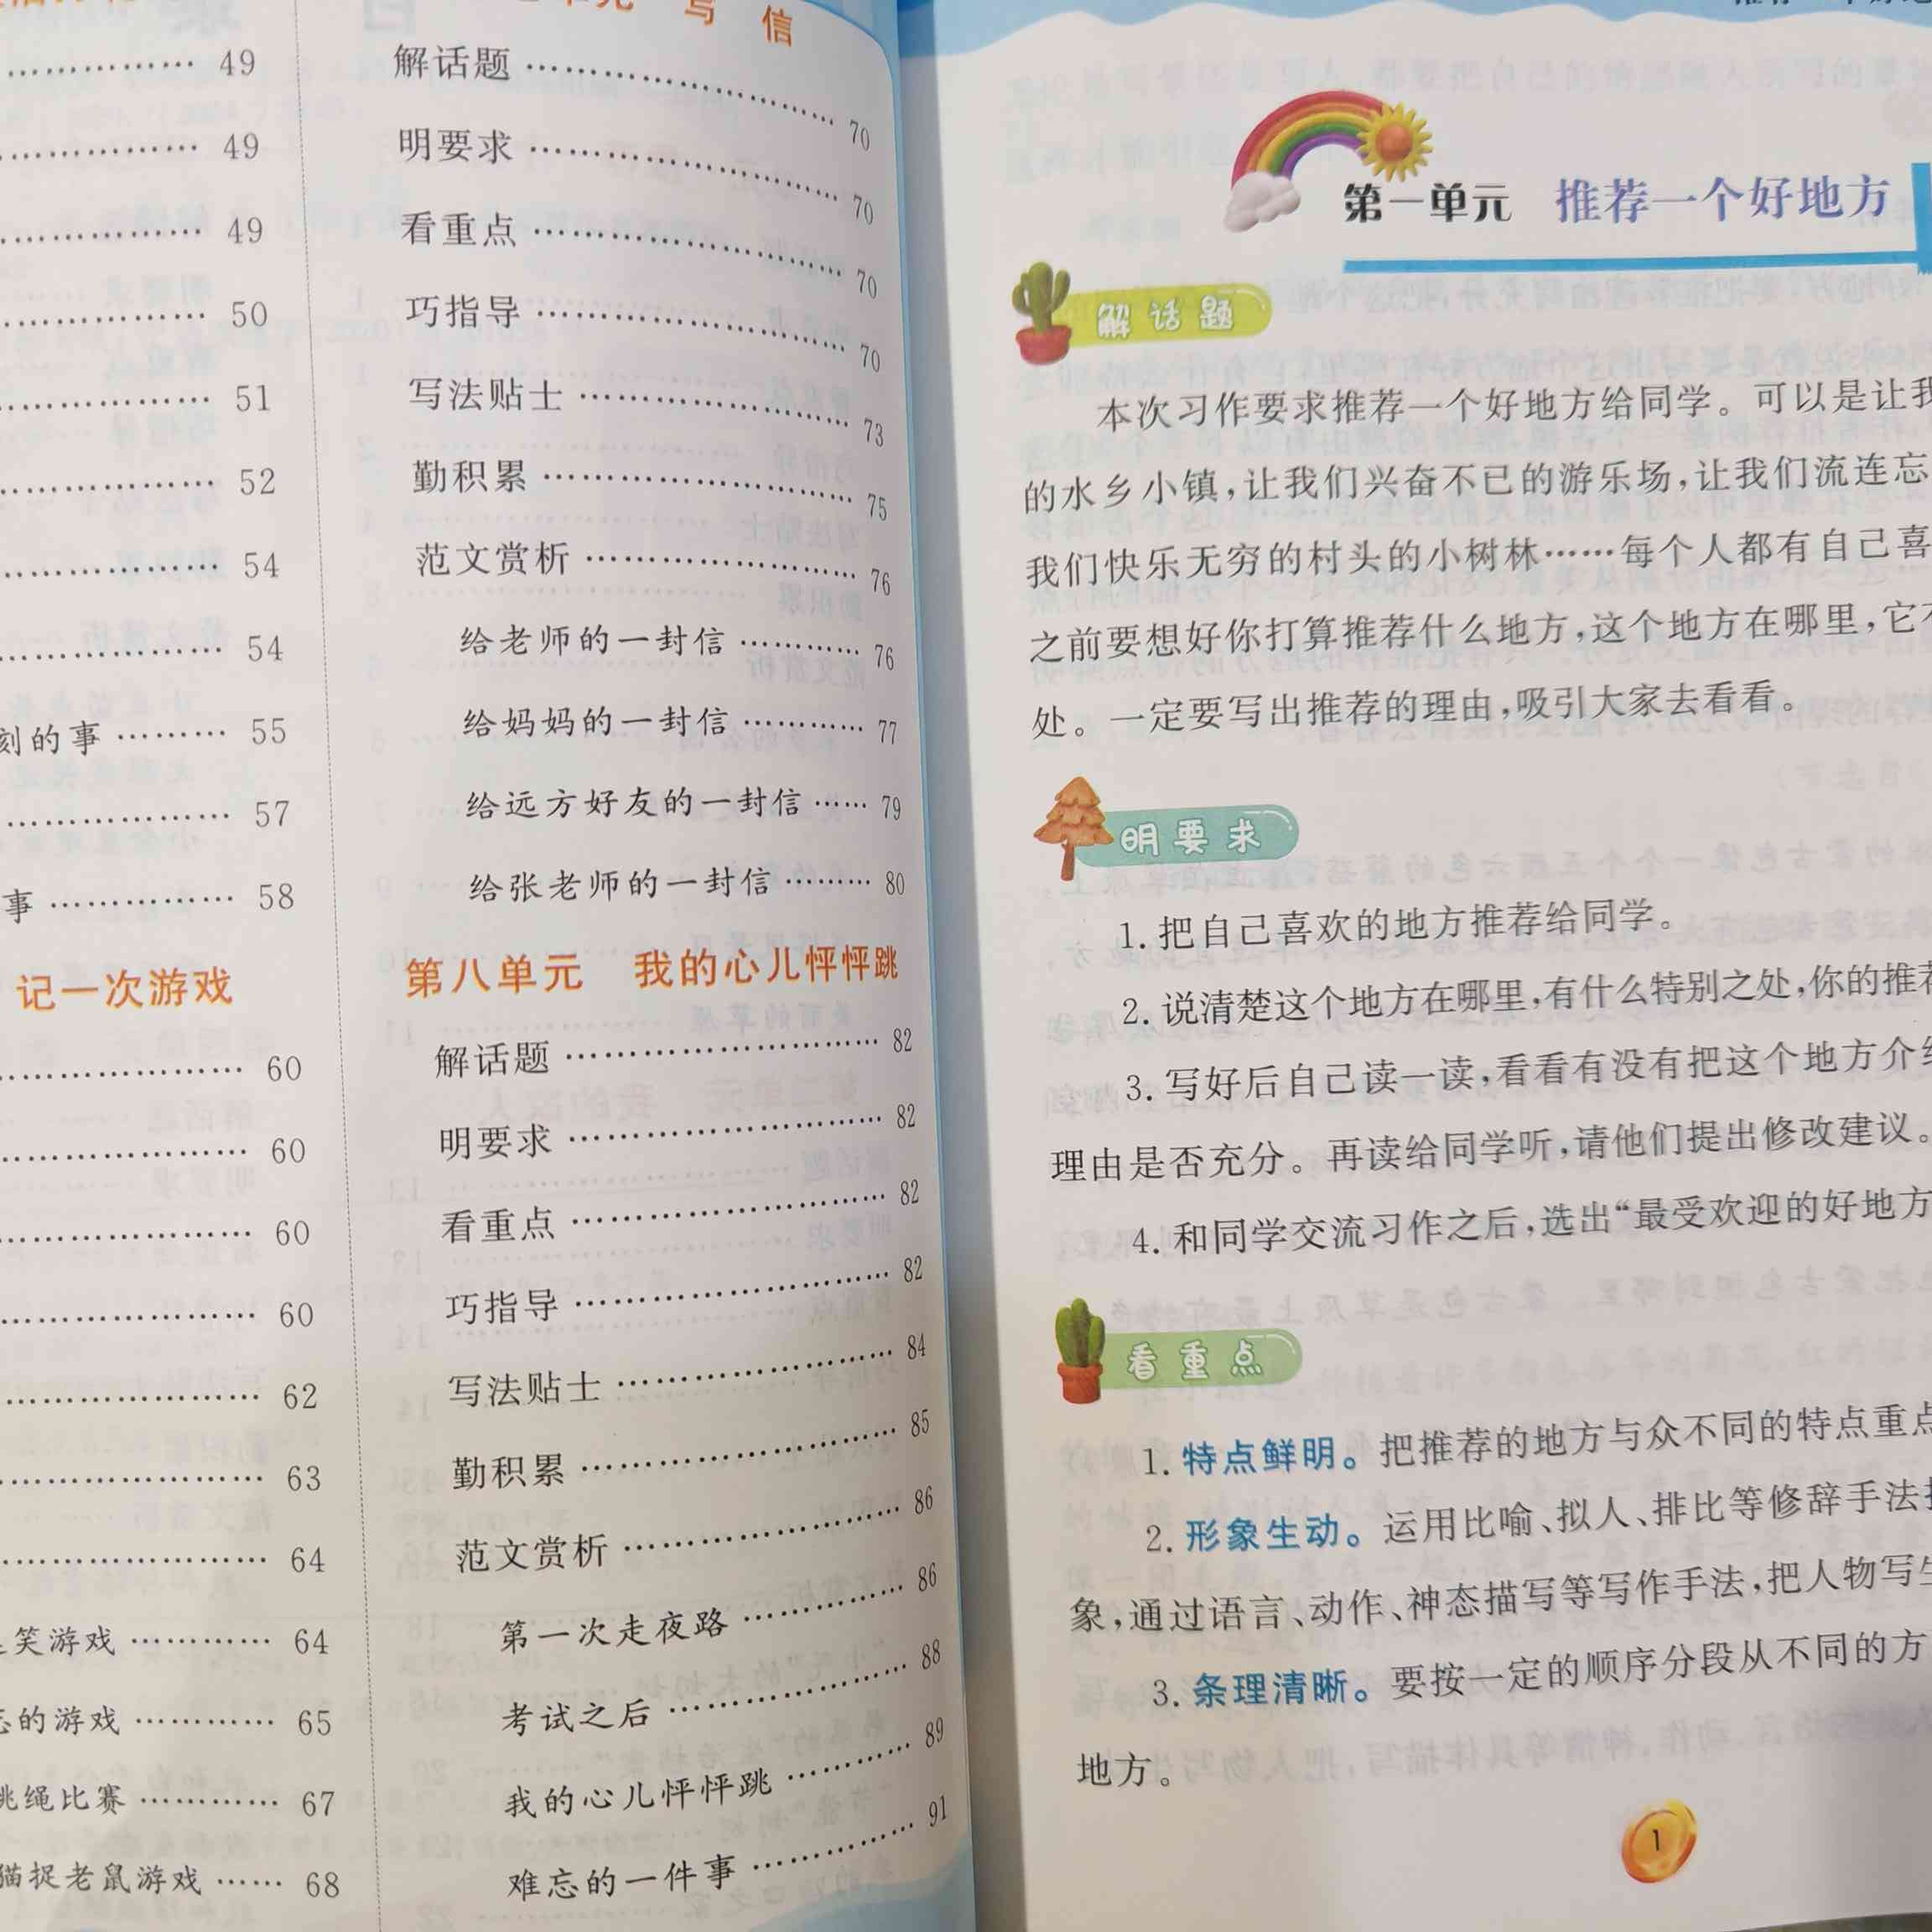 49
49
49
50
51
52
54
54
刻的事 ……… 55
57
事 ………… 58
记一次游戏
60
60
60
60
62
63
64
笑游戏 ………… 64
的游戏 ………… 65
跳绳比赛 ………… 67
猫捉老鼠游戏 …… 68
写 信
解话题 ………………………… 70
明要求 ………………………… 70
看重点 ………………………… 70
巧指导 ………………………… 70
写法贴士 ……………………… 73
勤积累 ………………………… 75
范文赏析 ……………………… 76
给老师的一封信 ………… 76
给妈妈的一封信 ………… 77
给远方好友的一封信 …… 79
给张老师的一封信 ……… 80
第八单元 我的心儿怦怦跳
解话题 ………………………… 82
明要求 ………………………… 82
看重点 ………………………… 82
巧指导 ………………………… 82
写法贴士 ……………………… 84
勤积累 ………………………… 85
范文赏析 ……………………… 86
第一次走夜路 …………… 86
考试之后 ………………… 88
我的心儿怦怦跳 ………… 89
难忘的一件事 …………… 91
第一单元 推荐一个好地方
解话题
本次习作要求推荐一个好地方给同学。可以是让我
的水乡小镇,让我们兴奋不已的游乐场,让我们流连忘
我们快乐无穷的村头的小树林……每个人都有自己喜
之前要想好你打算推荐什么地方,这个地方在哪里,它
处。一定要写出推荐的理由,吸引大家去看看。
明要求
1. 把自己喜欢的地方推荐给同学。
2. 说清楚这个地方在哪里,有什么特别之处,你的推荐
3. 写好后自己读一读,看看有没有把这个地方介绍
理由是否充分。再读给同学听,请他们提出修改建议。
4. 和同学交流习作之后,选出“最受欢迎的好地方
看重点
1. 特点鲜明。把推荐的地方与众不同的特点重点
2. 形象生动。运用比喻、拟人、排比等修辞手法
象,通过语言、动作、神态描写等写作手法,把人物写生
3. 条理清晰。要按一定的顺序分段从不同的方
地方。
1